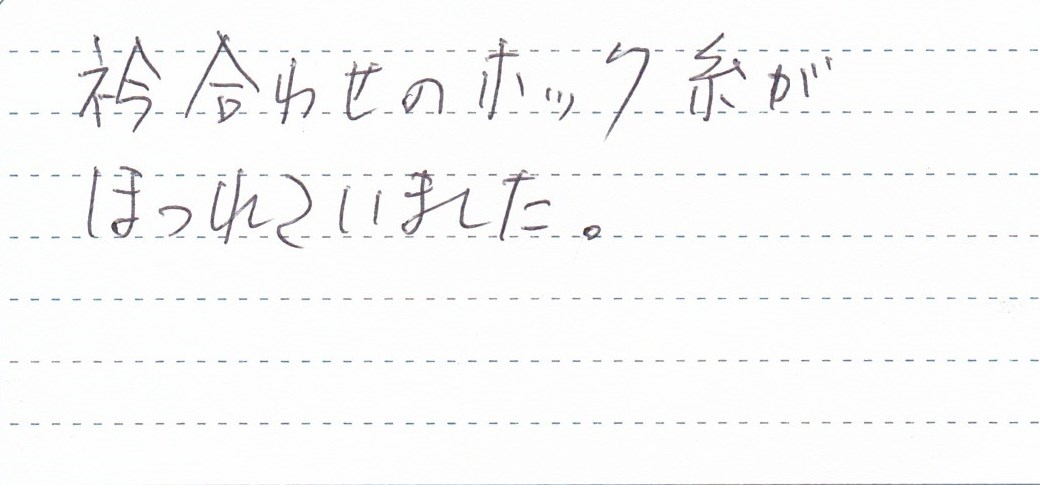 衿合わせのホック糸が
ほつれていました。